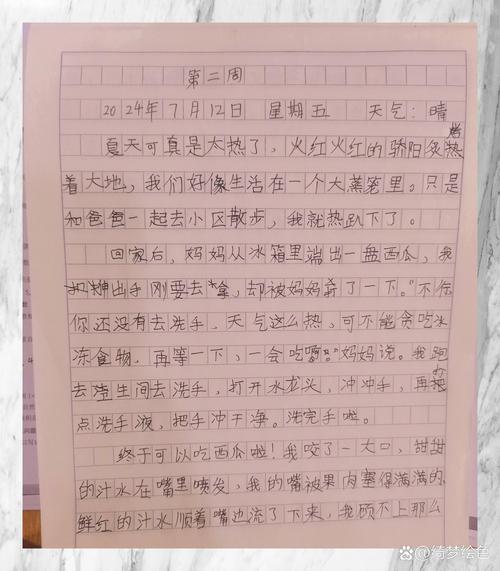 第二周
2024年7月12日 星期五 天气:晴
夏天可真是太热了,火红火红的骄阳炙烤
着大地,我们好像生活在一个大蒸笼里。只是
和爸爸一起去小区散步,我就热趴下了。
回家后,妈妈从冰箱里端出一盘西瓜,我
伸出手刚要去拿,却被妈妈 了一下。"不行
你还没有去洗手,天气这么热,可不能贪吃冰
冻食物,再等一下,一会吃 "妈妈说。我跑
去 生间去洗手,打开水龙头,冲冲手,再
点洗手液,把手冲干净。洗完手啦。
终于可以吃西瓜啦!我咬了一大口,甜甜
的汁水在嘴里喷发,我的嘴被果肉塞得满满的,
鲜红的汁水顺着嘴边流了下来,我顾不上那么
绮梦绘色